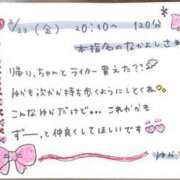 8/23(金) 20:10〜 120分
本指名のなかよしさま
帰り、ちゃんとライター買えた??
ゆかも次から持ち歩くようにしとくね
こんなゆかだけど...これからも
ずーっと仲良くしてほしいです
ゆかり